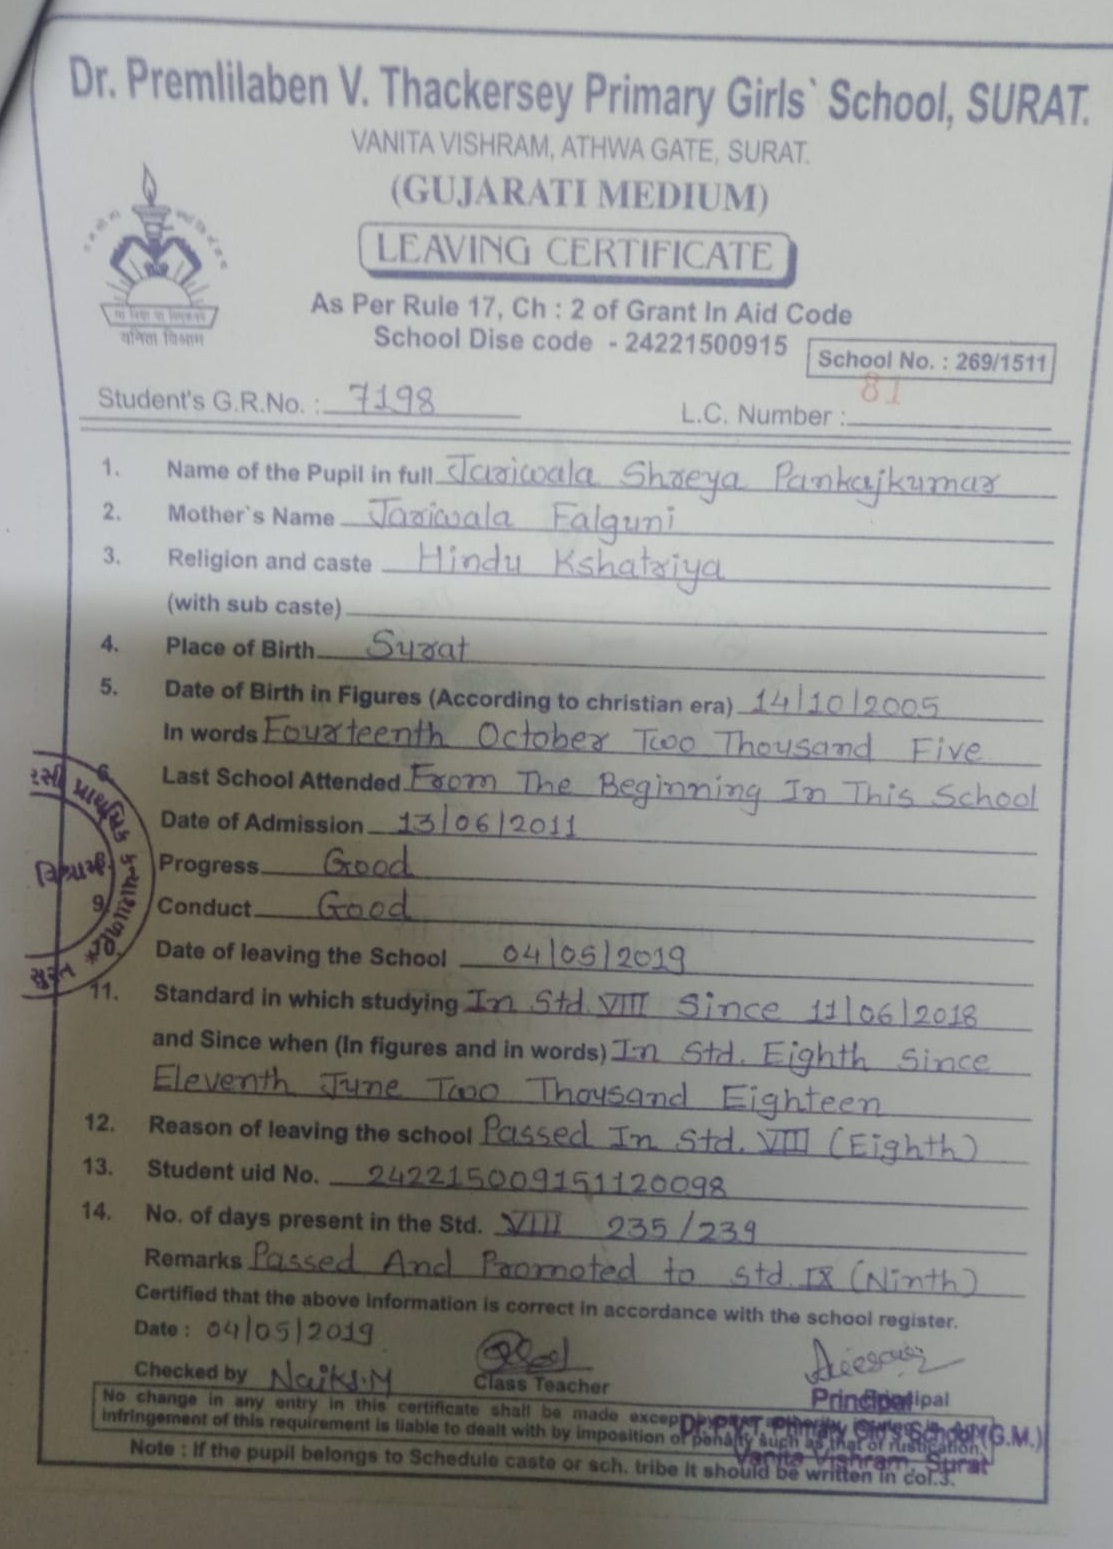 Dr. Premlilaben V. Thackersey Primary Girls` School, SURAT.
VANITA VISHRAM, ATHWA GATE, SURAT.
(GUJARATI MEDIUM)
LEAVING CERTIFICATE
As Per Rule 17, Ch : 2 of Grant In Aid Code
School Dise code - 24221500915
School No. : 269/1511
वनिता विश्राम
Student's G.R.No. : 7198
L.C. Number : 81
1. Name of the Pupil in full Jariwala Shreya Pankajkumar
2. Mother's Name Jariwala Falguni
3. Religion and caste Hindu Kshatriya
(with sub caste)
4. Place of Birth Surat
5. Date of Birth in Figures (According to christian era) 14/10/2005
In words Fourteenth October Two Thousand Five
6. Last School Attended From The Beginning In This School
Date of Admission 13/06/2011
Progress Good
9. Conduct Good
Date of leaving the School 04/05/2019
11. Standard in which studying In Std. VIII Since 11/06/2018
and Since when (In figures and in words) In Std. Eighth Since
Eleventh June Two Thousand Eighteen
12. Reason of leaving the school Passed In Std. VIII (Eighth)
13. Student uid No. 242215009151120098
14. No. of days present in the Std. VIII 235/239
Remarks Passed And Promoted to Std. IX (Ninth)
Certified that the above information is correct in accordance with the school register.
Date : 04/05/2019
Checked by Naik S.M
Class Teacher
Principal
Principal
No change in any entry in this certificate shall be made except
Infringement of this requirement is liable to dealt with by imposition of penalty such as that of rustication.
Dr. P.V.T. Primary Girl's School (G.M.)
Vanita Vishram, Surat
Note : If the pupil belongs to Schedule caste or sch. tribe it should be written in col.3.
સુરત